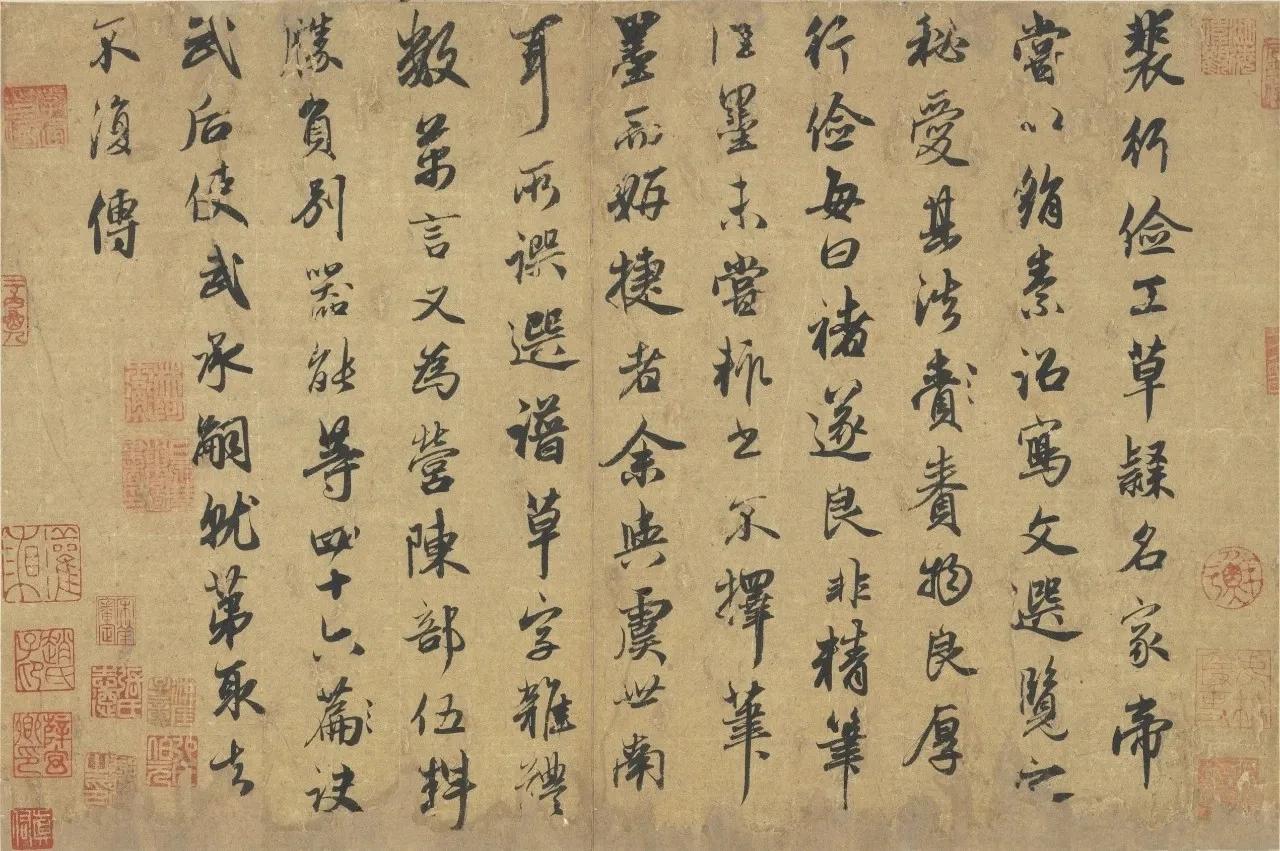 裴行儉工草隸名家帝
嘗以絹素詔寫文選覽之
秘愛其法賚賚物良厚
行儉每曰褚遂良非精筆
佳墨未嘗輒書不擇筆
墨而妍捷者余與虞世南
耳所譔選譜草字雜體
數萬言又為營陳部伍料
勝負別器能等四十六篇訣
武后使武承嗣就第取去
不復傳